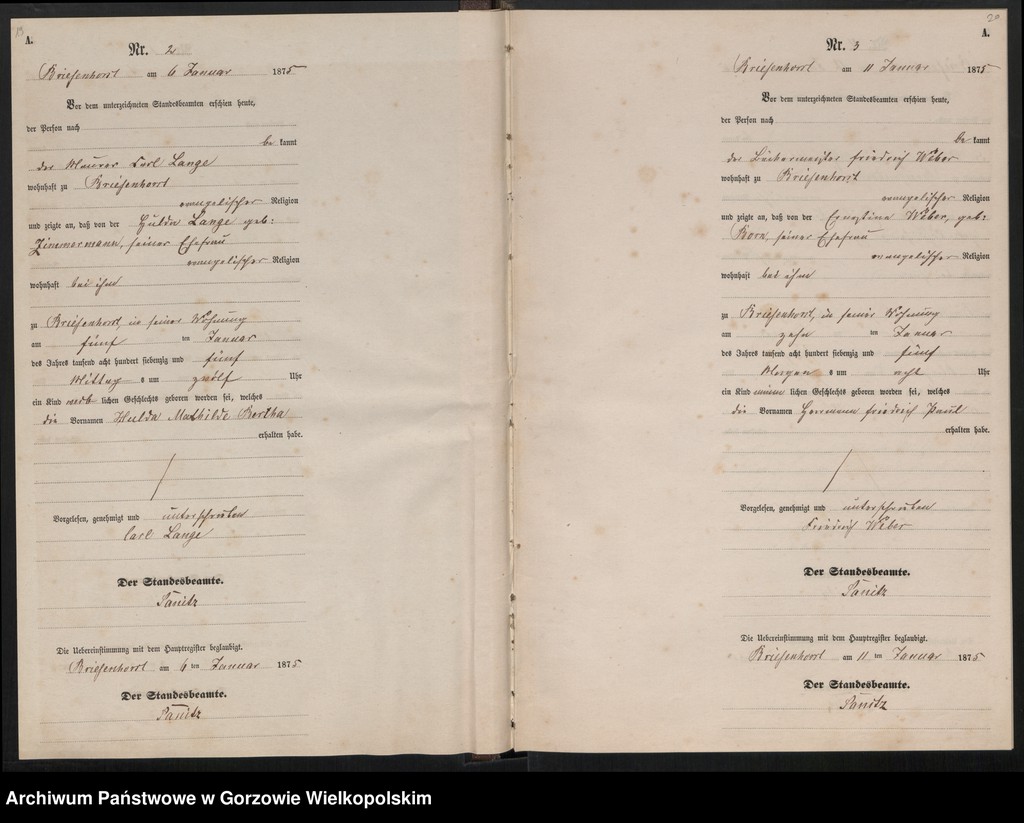 19
A.
Nr. 2
Briesenhorst am 6 Januar 1875
Vor dem unterzeichneten Standesbeamten erschien heute,
der Person nach
be kannt
der Maurer Carl Lange
wohnhaft zu Briesenhorst
evangelischer Religion
und zeigte an, daß von der Hulda Lange geb:
Zimmermann, seiner Ehefrau
evangelischer Religion
wohnhaft bei ihm
zu Briesenhorst, in seiner Wohnung
am fünf ten Januar
des Jahres tausend acht hundert siebenzig und fünf
Mittag s um zwölf Uhr
ein Kind weib lichen Geschlechts geboren worden sei, welches
die Vornamen Hulda Mathilde Bertha
erhalten habe.
Vorgelesen, genehmigt und unterschrieben
Carl Lange
Der Standesbeamte.
Panitz
Die Uebereinstimmung mit dem Hauptregister beglaubigt.
Briesenhorst am 6 ten Januar 1875
Der Standesbeamte.
Panitz
20
A.
Nr. 3
Briesenhorst am 11 Januar 1875
Vor dem unterzeichneten Standesbeamten erschien heute,
der Person nach
be kannt
der Bäckermeister Friedrich Weber
wohnhaft zu Briesenhorst
evangelischer Religion
und zeigte an, daß von der Ernestine Weber, geb:
Born, seiner Ehefrau
evangelischer Religion
wohnhaft bei ihm
zu Briesenhorst, in seiner Wohnung
am zehn ten Januar
des Jahres tausend acht hundert siebenzig und fünf
Morgen s um acht Uhr
ein Kind männ lichen Geschlechts geboren worden sei, welches
die Vornamen Herrmann Friedrich Paul
erhalten habe.
Vorgelesen, genehmigt und unterschrieben
Friedrich Weber
Der Standesbeamte.
Panitz
Die Uebereinstimmung mit dem Hauptregister beglaubigt.
Briesenhorst am 11 ten Januar 1875
Der Standesbeamte.
Panitz
Archiwum Państwowe w Gorzowie Wielkopolskim